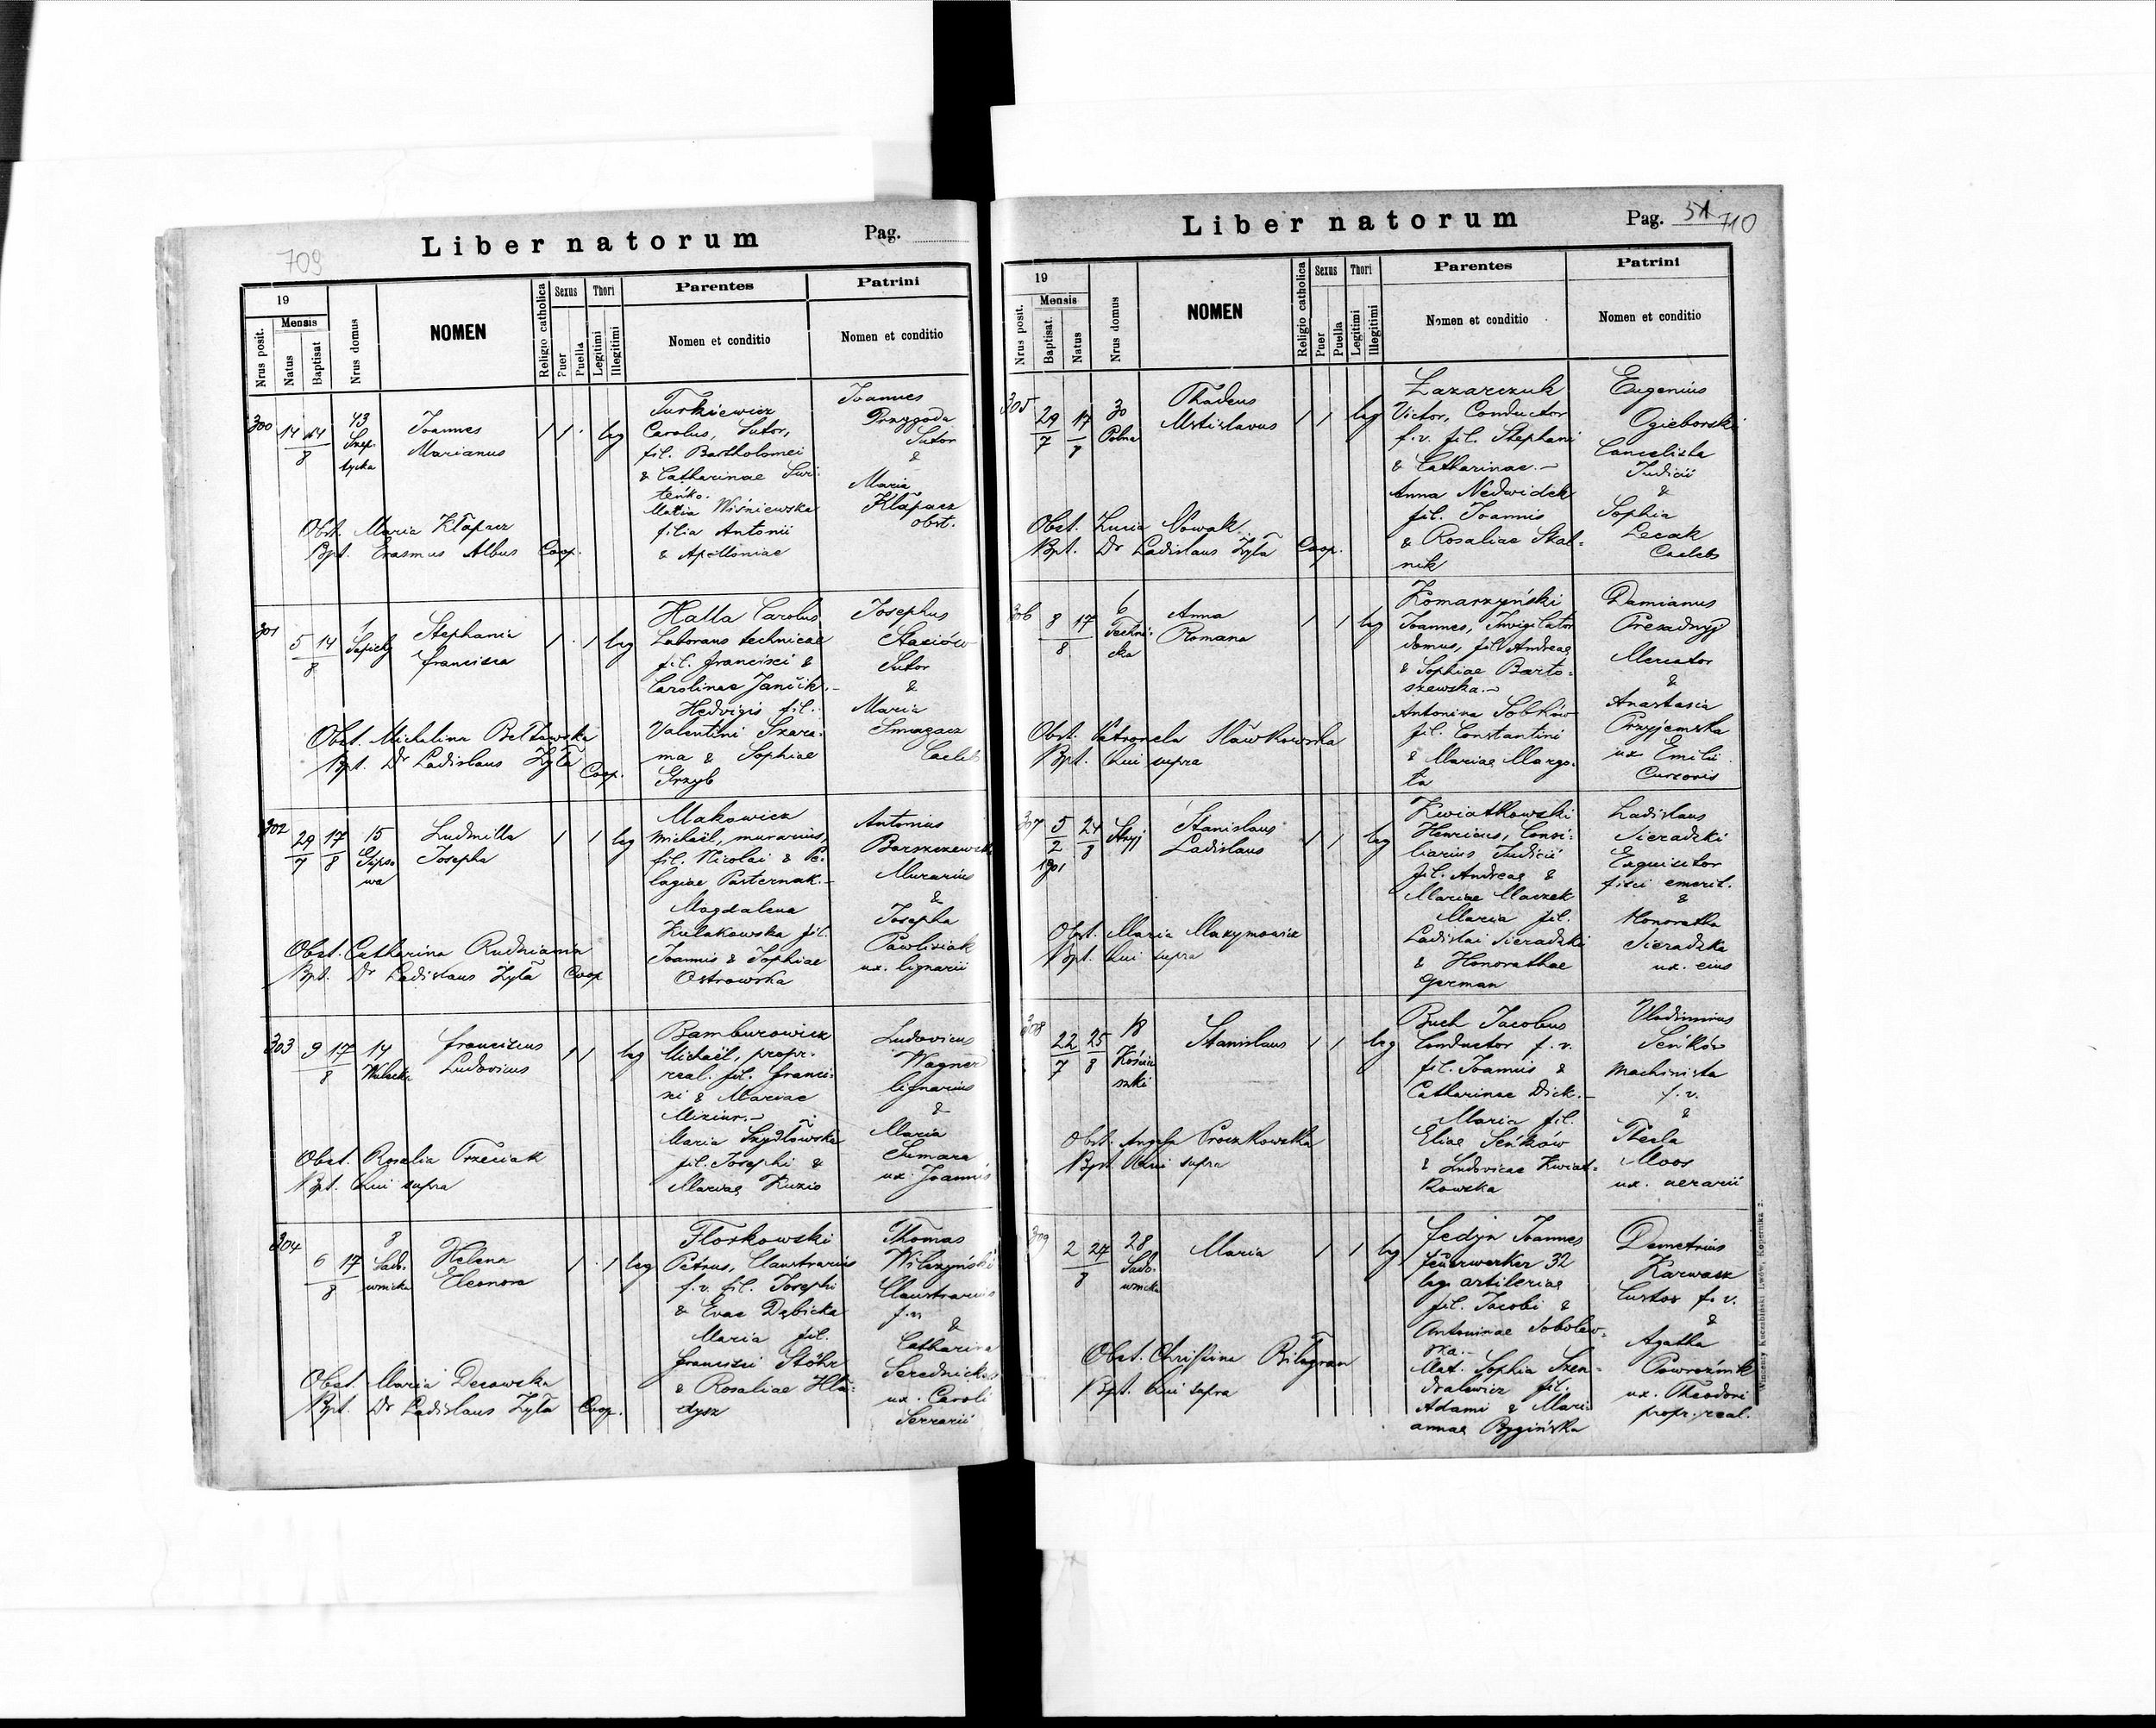 709
Liber natorum
Pag.
19
Mensis
Nrus posit.
Natus
Baptisat
Nrus domus
NOMEN
Religio catholica
Sexus
Puer
Puella
Thori
Legitimi
Illegitimi
Parentes
Nomen et conditio
Patrini
Nomen et conditio
300
14 14
8
43
Szep-
tycka
Joannes
Marianus
1 1 . leg
Turkiewicz
Carolus, Sutor,
fil. Bartholomei
& Catharinae Swi-
teńko.
Maria Wiśniewska
filia Antonii
& Apolloniae
Joannes
Przygoda
Sutor
&
Maria
Kłapacz
obst.
Obst. Maria Kłapacz
Bpt. Erasmus Albus Coop.
301
5 14
8
1
Sapiehy
Stephania
Francisca
1 . 1 leg
Halla Carolus
Laborans technicae
fil. Francisci &
Carolinae Jančik.-
Hedvigis fil.
Valentini Szara-
ma & Sophiae
Grzyb
Josephus
Stasiów
Sutor
&
Maria
Smagacz
Caelebs
Obst. Michalina Bełtowska
Bpt. Dr Ladislaus Żyła Coop.
302
29 17
7 8
15
Gipso
wa
Ludmilla
Josepha
1 1 leg
Makowicz
Michaël, murarius,
fil. Nicolai & Pe-
lagiae Pasternak.-
Magdalena
Kulakowska fil.
Joannis & Sophiae
Ostrowska
Antonius
Barszczewski
Murarius
&
Josepha
Pawlisiak
ux. lignarii
Obst. Catharina Rudniania
Bpt. Dr Ladislaus Żyła Coop
303
9 17
8
14
Wulecka
Franciscus
Ludovicus
1 1 leg
Bamburowicz
Michaël, propr.
real. fil. Franci-
sci & Mariae
Miziur.-
Maria Szydłowska
fil. Josephi &
Mariae Kuzio
Ludovicus
Wagner
lignarius
&
Maria
Sumara
ux. Joannis
Obst. Rosalia Trzeciak
Bpt. Qui supra
304
6 17
8
8
Sado-
wnicka
Helena
Eleonora
1 . 1 leg
Florkowski
Petrus, Claustrarius
f.v. fil. Josephi
& Evae Dąbicka
Maria fil.
Francisci Stöhr
& Rosaliae Hła-
dysz
Thomas
Wilczyński
Claustrarius
f.v.
&
Catharina
Serednicka
ux. Caroli
Serrarii
Obst. Maria Decowska
Bpt. Dr Ladislaus Żyła Coop.
Liber natorum
Pag. 51
710
19
Mensis
Nrus posit.
Baptisat.
Natus
Nrus domus
NOMEN
Religio catholica
Sexus
Puer
Puella
Thori
Legitimi
Illegitimi
Parentes
Nomen et conditio
Patrini
Nomen et conditio
305
29 17
7 8
30
Polna
Thadeus
Mstislavus
1 1 leg
Łazarczuk
Victor, Conductor
f.v. fil. Stephani
& Catharinae.-
Anna Nedwidek
fil. Joannis
& Rosaliae Skal-
nik
Eugenius
Ogieborski
Cancelista
Judicii
&
Sophia
Lecak
Caelebs
Obst. Lucia Nowak
Bpt. Dr Ladislaus Żyła Coop.
306
8 17
8
6
Techni-
cka
Anna
Romana
1 1 leg
Komarzyński
Joannes, Invigilator
domus, fil. Andreae
& Sophiae Barto-
szewska.-
Antonina Sobków
fil. Constantini
& Mariae Margo-
ta
Damianus
Presadnyj
Mercator
&
Anastasia
Przyjemska
ux. Emilii
Cursoris
Obst. Petronela Sławkowska
Bpt. Qui supra
307
5 24
2 8
1901
Stryj
Stanislaus
Ladislaus
1 1 leg
Kwiatkowski
Henricus, Consi-
liarius Judicii
fil. Andreae &
Mariae Maczek
Maria fil.
Ladislai Sieradzki
& Honorathae
German
Ladislaus
Sieradzki
Exquisitor
fisci emerit.
&
Honoratha
Sieradzka
ux. eius
Obst. Maria Maxymowicz
Bpt. Qui supra
308
22 25
7 8
18
Kościu
szki
Stanislaus
1 1 leg
Buch Jacobus
Conductor f.v.
fil. Joannis &
Catharinae Dick.-
Maria fil.
Eliae Seńków
& Ludovicae Kwiat-
kowska
Vladimirus
Seńków
Machinista
f.v.
&
Thecla
Moos
ux. aerarii
Obst. Angela Proczkowska
Bpt. Qui supra
309
2 27
8
28
Sado-
wnicka
Maria
1 1 leg
Fedyn Joannes
Feuerwerker 32
leg. artileriae
fil. Jacobi &
Antoninae Sobolew-
ska.-
Mat. Sophia Szen-
dralewicz fil.
Adami & Mari-
annae Bygińska
Demetrius
Karwacz
Custos f.v.
&
Agatha
Powroźnik
ux. Theodori
propr. real.
Obst. Christina Bilagran
Bpt. Qui supra
Wincenty Kuczabiński Lwów, Kopernika 2.